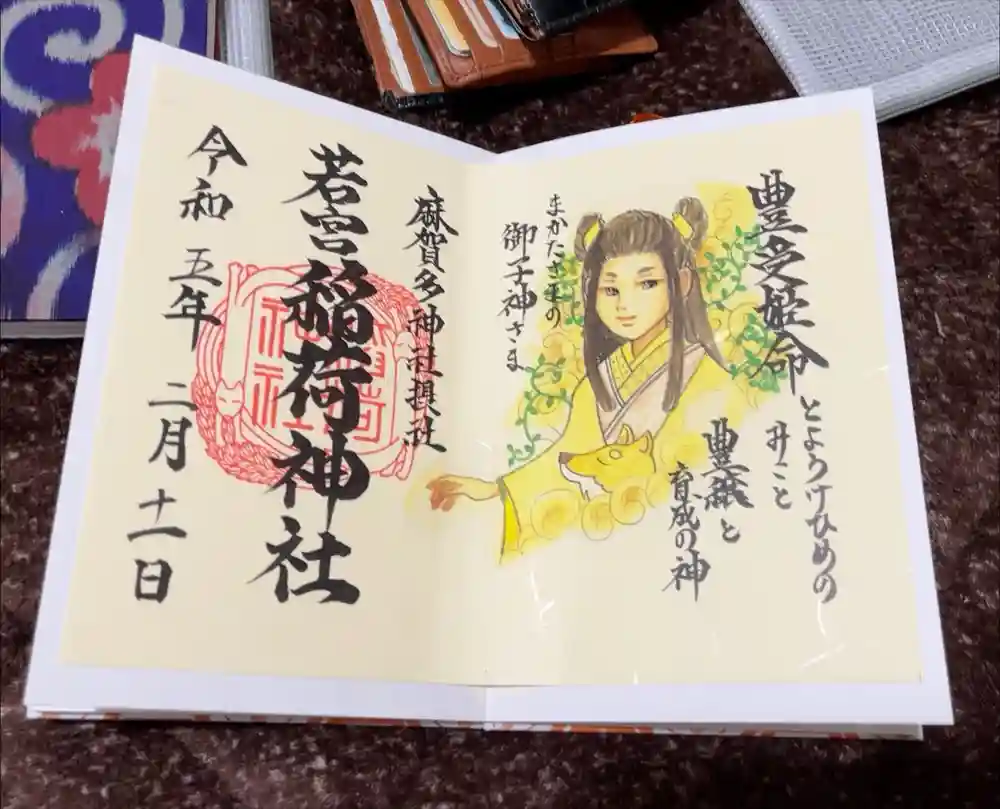 豊受姫命
とようけひめの
みこと
豊穣と
育成の神
まかたさまの
御子神さま
麻賀多神社摂社
若宮稲荷神社
令和五年二月十一日